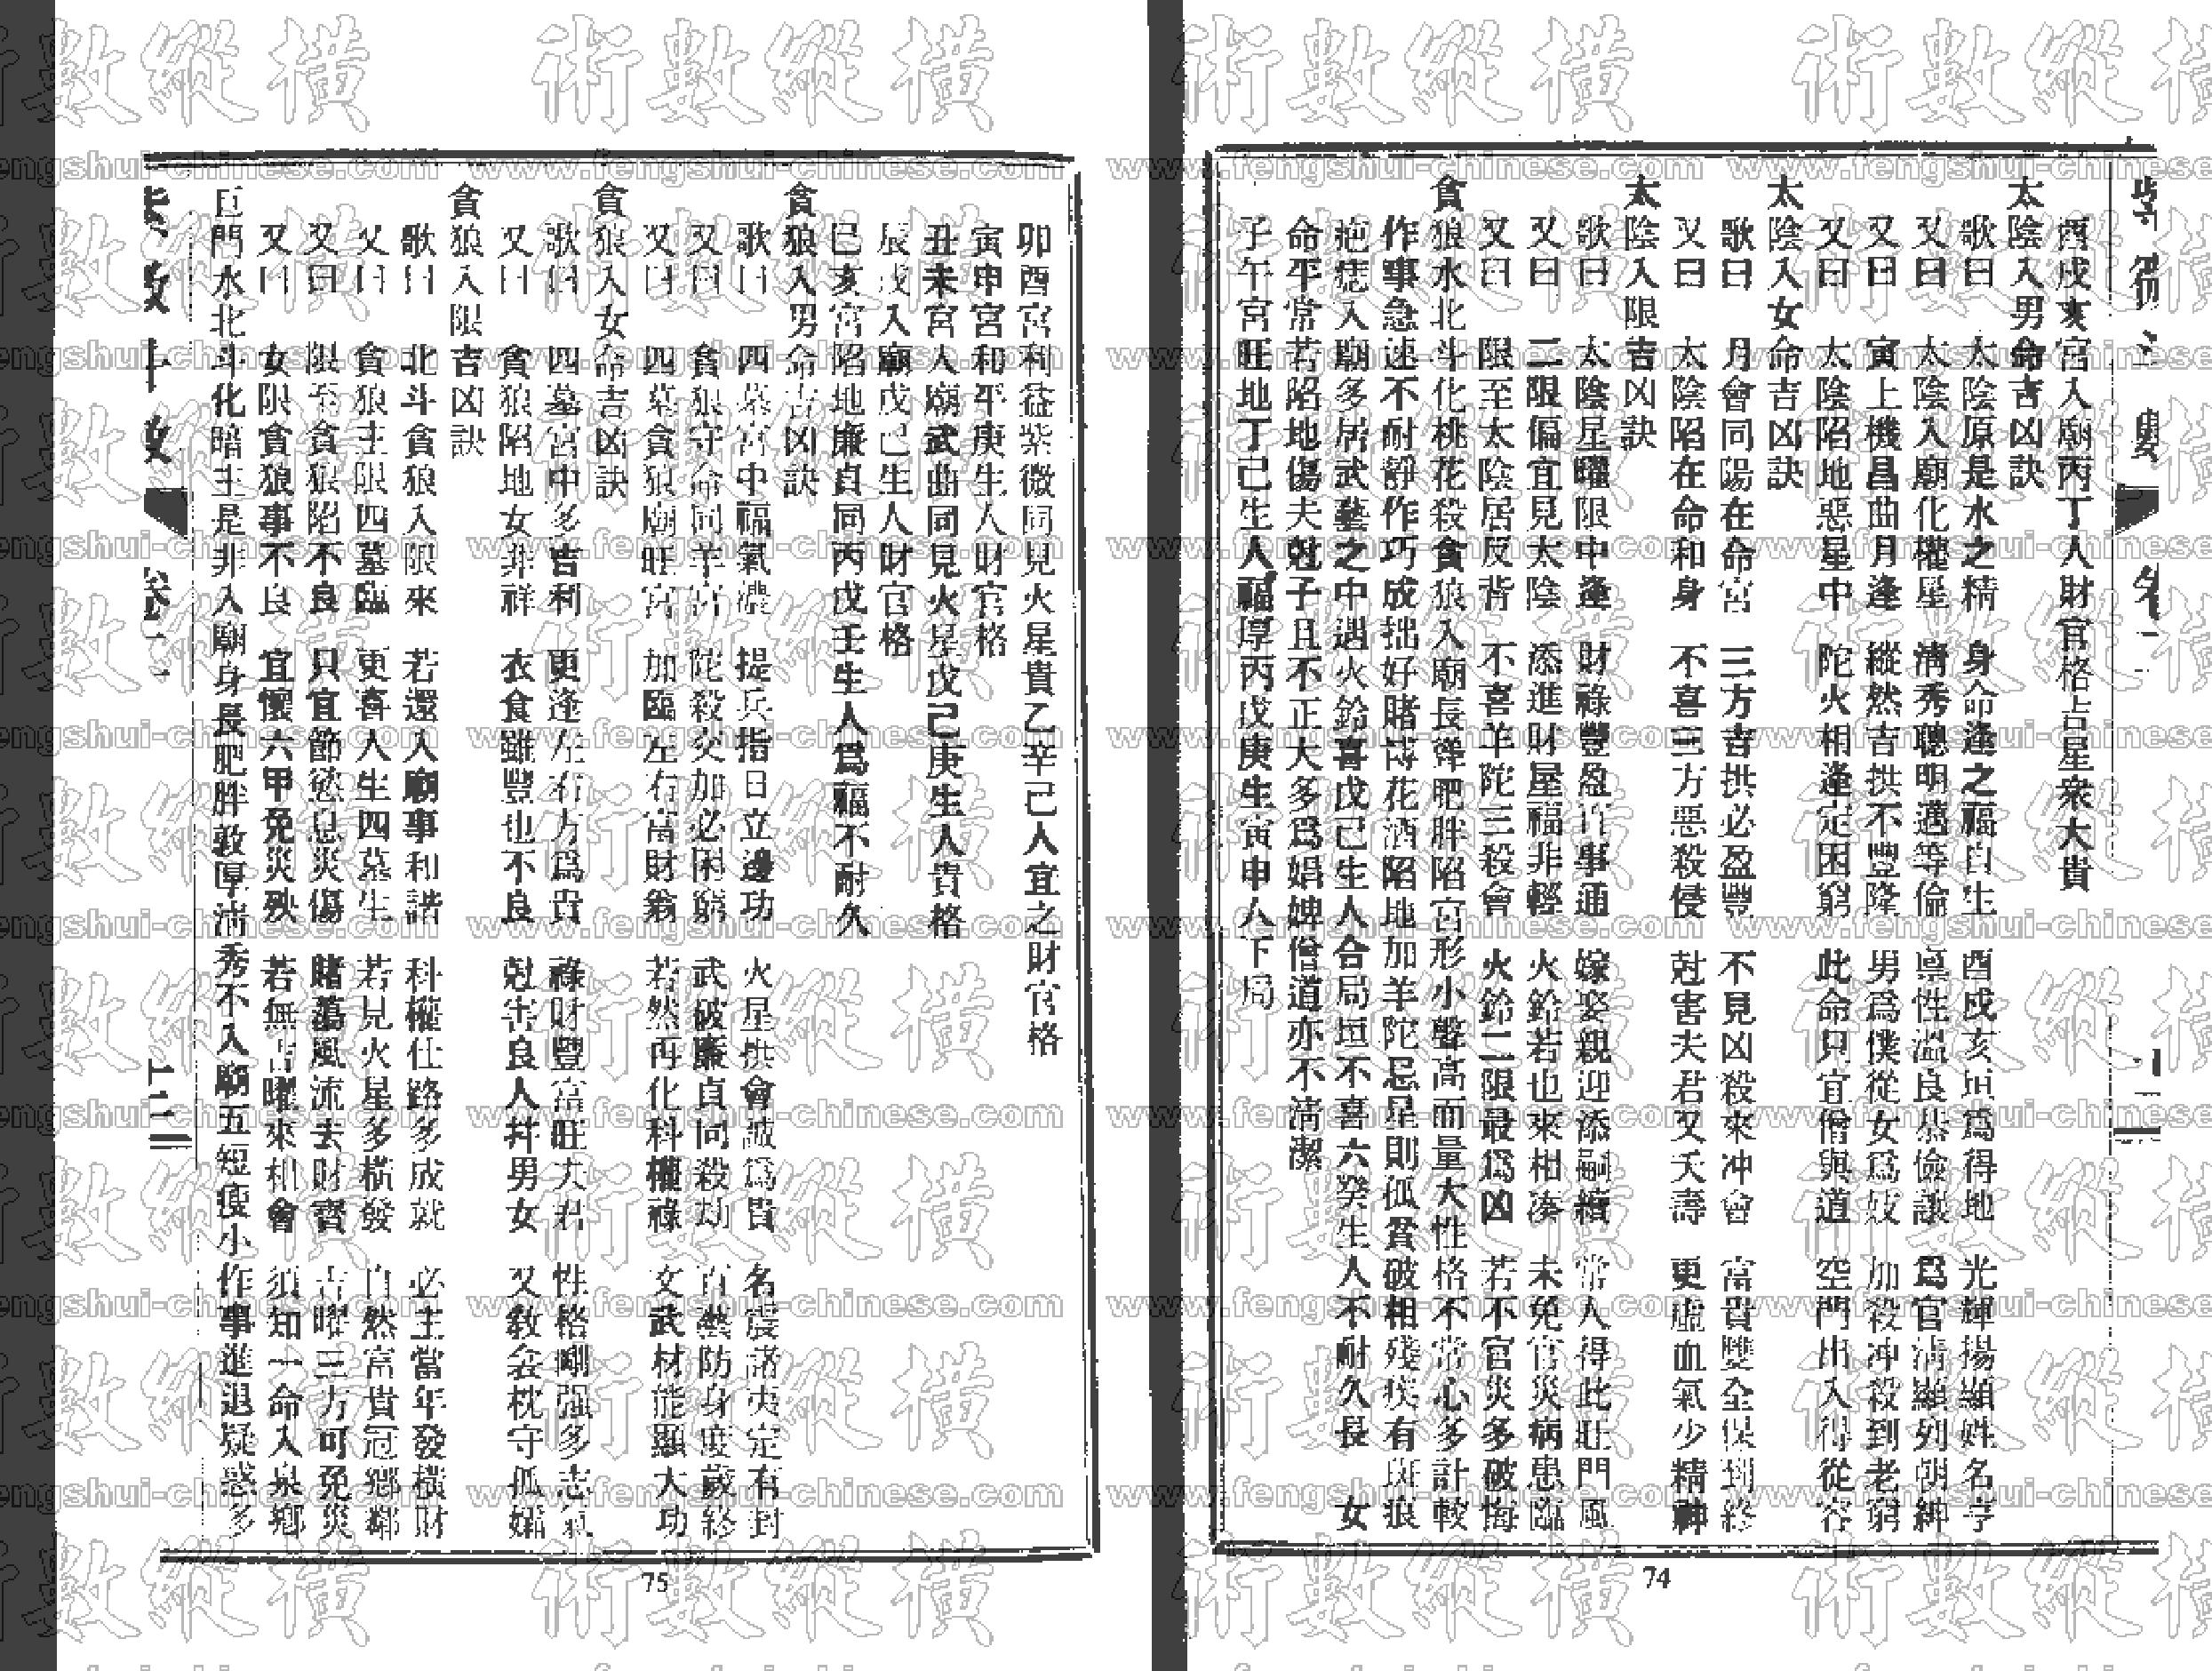 酉戌亥宮入廟丙丁人財官格吉星衆大貴
太陰入男命吉凶訣
歌曰 太陰原是水之精 身命逢之福自生 酉戌亥垣爲得地 光輝揚顯姓名亨
又曰 太陰入廟化權星 清秀聰明邁等倫 稟性溫良恭儉讓 爲官清顯列朝紳
又曰 寅上機昌曲月逢 縱然吉拱不豐隆 男爲僕從女爲妓 加殺冲殺到老窮
又曰 太陰陷地惡星中 陀火相逢定困窮 此命只宜僧與道 空門出入得從容
太陰入女命吉凶訣
歌曰 月會同陽在命宮 三方吉拱必盈豐 不見凶殺來冲會 富貴雙全保到終
又曰 太陰陷在命和身 不喜三方惡殺侵 尅害夫君又夭壽 更虛血氣少精神
太陰入限吉凶訣
歌曰 太陰星曜限中逢 財祿豐盈百事通 嫁娶親迎添嗣續 常人得此旺門風
又曰 二限偏宜見太陰 添進財屋福非輕 火鈴若也來相湊 未免官災病患臨
又曰 限至太陰居反背 不喜羊陀三殺會 火鈴二限最爲凶 若不官災多破悔
貪狼水北斗化桃花殺貪狼入廟長聳肥胖陷宮形小聲高而量大性格不常心多計較
作事急速不耐靜作巧成拙好賭博花酒陷地加羊陀忌星則孤貧破相殘疾有斑痕
疤痣入廟多居武藝之中遇火鈴喜戊己生人合局垣不喜六癸生人不耐久長 女
命平常若陷地傷夫尅子且不正大多爲娼婢僧道亦不清潔
子午宮旺地丁己生人福厚丙戊庚生寅申人下局
卯酉宮利益紫微同見火星貴乙辛己人宜之財官格
寅申宮和平庚生人財官格
丑未宮入廟武曲同見火星戊己庚生人貴格
辰戌入廟戊己生人財官格
巳亥宮陷地廉貞同丙戊壬生人爲福不耐久
貪狼入男命吉凶訣
歌曰 四墓宮中福氣濃 提兵指日立邊功 火星拱會誠爲貴 名震諸夷定有封
又曰 貪狼守命同羊宮 陀殺交加必困窮 武破廉貞同殺劫 百藝防身度歲終
又曰 四墓貪狼廟旺宮 加臨左右富財翁 若然再化科權祿 文武材能顯大功
貪狼入女命吉凶訣
歌曰 四墓宮中多吉利 更逢左右方爲貴 祿財豐富旺夫君 性格剛强多志氣
又曰 貪狼陷地女非祥 衣食雖豐也不良 尅害良人并男女 又教衾枕守孤孀
貪狼入限吉凶訣
歌曰 北斗貪狼入限來 若還入廟事和諧 科權仕路多成就 必主當年發橫財
又曰 貪狼主限四墓臨 更喜人生四墓生 若見火星多橫發 自然富貴冠鄉鄰
又曰 限至貪狼陷不良 只宜節慾息災傷 賭蕩風流去財寶 吉曜三方可免災
又曰 女限貪狼事不良 宜懷六甲免災殃 若無吉曜來相會 須知一命入泉鄉
巨門水北斗化暗主是非入廟身長肥胖敦厚清秀不入廟五短瘦小作事進退疑惑多
74
75